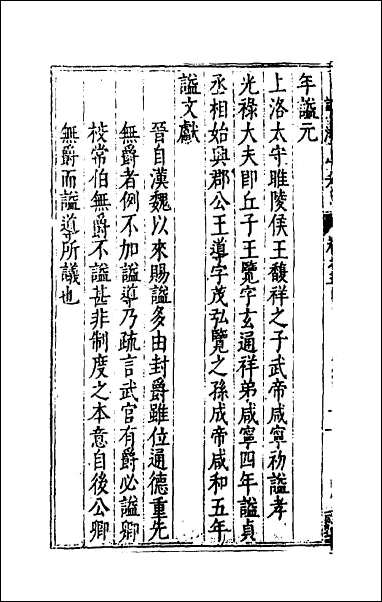 年謚元
上洛太守睢陵侯王馥祥之子武帝咸寧初謚孝
光祿大夫即丘子王覽字玄通祥弟咸寧四年謚貞
丞相始興郡公王導字茂弘覽之孫成帝咸和五年
謚文獻
晉自漢魏以來賜謚多由封爵雖位通德重先
無爵者例不加謚導乃疏言武官有爵必謚卿
校常伯無爵不謚甚非制度之本意自後公卿
無爵而謚導所議也